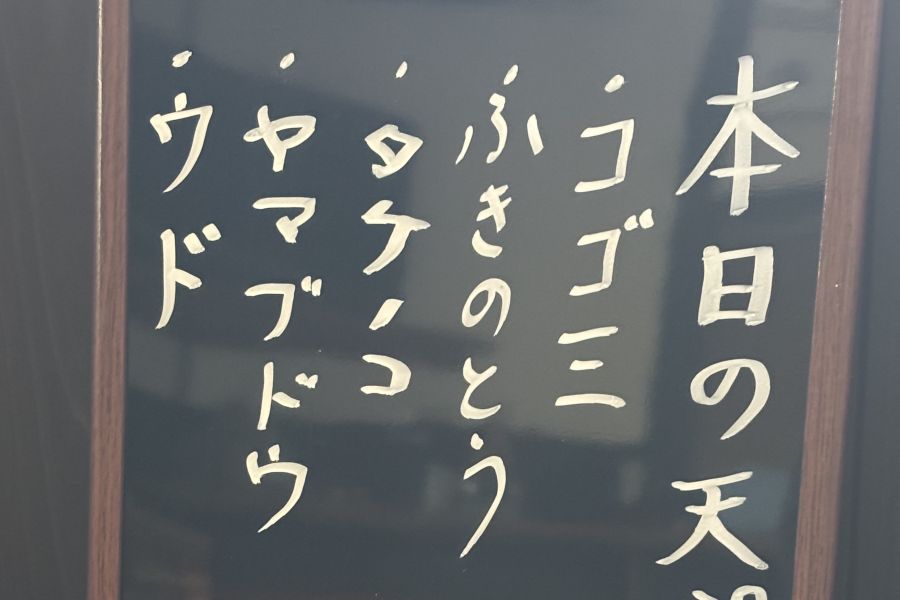 本日の天
・コゴミ
・ふきのとう
・タケノコ
・ヤマブドウ
・ウド